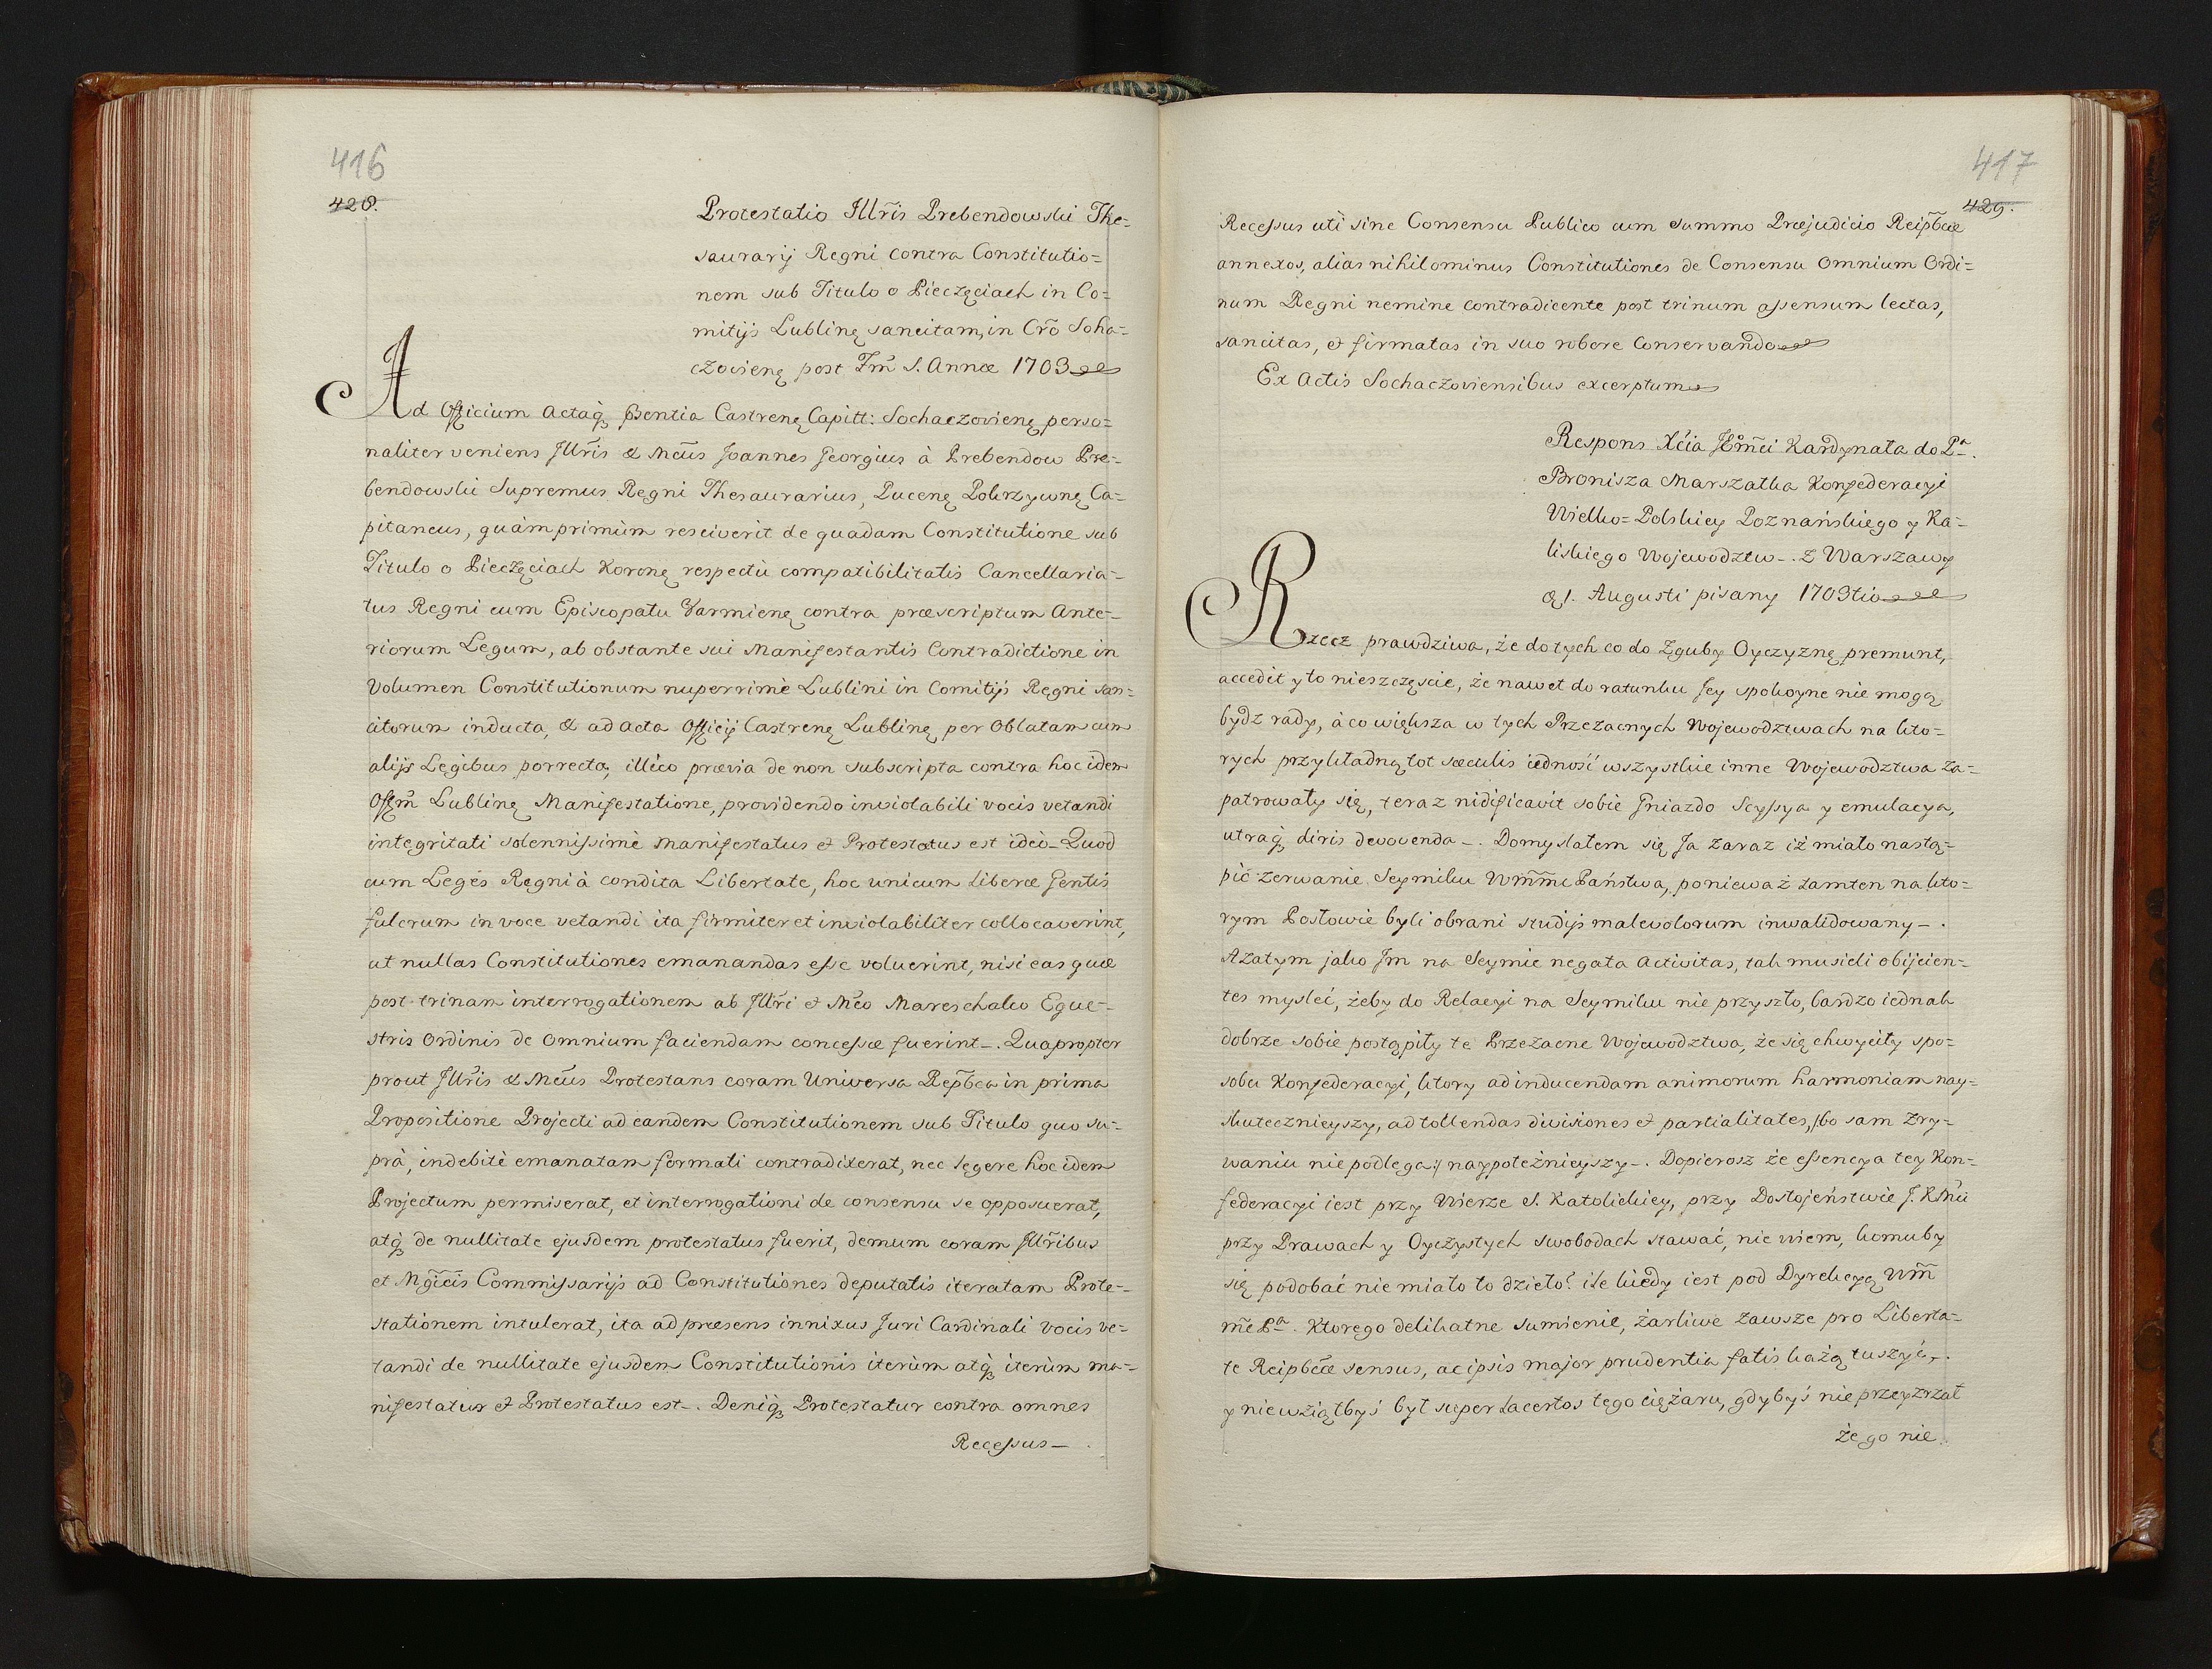 416
428.
Protestatio Illr̃is Prebendowski The=
saurarij Regni contra Constitutio=
nem sub Titulo o Pieczęciach in Co=
mitijs Lublinę sancitam, in Cr̃o Socha=
czovienę post Fm̃ S. Annæ 1703
Ad Officium Actaq́ꝫ Pſentia Castrenę Capitt: Sochaczovienę perso=
naliter veniens Illr̃is & Mcũs Joannes Georgius à Prebendow Pre=
bendowski Supremus Regni Thesaurarius, Pucenę Pokrzywnę Ca=
pitaneus, quàm primùm resciverit de quadam Constitutione sub
Titulo o Pieczęciach Koronę respectù compatibilitatis Cancellaria=
tus Regni cum Episcopatu Varmienę contra præscriptum Ante=
riorum Legum, ab obstante sui Manifestantis Contradictione in
Volumen Constitutionum nuperrimè Lublini in Comitijs Regni san=
citorum inducta, & ad Acta Officij Castrenę Lublinę per Oblatam cum
alijs Legibus porrecta, illico prævia de non subscripta contra hoc idem
Offm̃ Lublinę Manifestatione, providendo inviolabili vocis vetandi
integritati solennissimè manifestatus et Protestatus est ideò_ Quod
cum Leges Regni à condita Libertate, hoc unicum liberæ Gentis
fulcrum in voce vetandi ita firmiter et inviolabiliter collocaverint,
ut nullas Constitutiones emanandas esse voluerint, nisi eas quæ
post trinam interrogationem ab Illr̃i et Mc̃o Mareschalco Eque=
stris Ordinis de omnium faciendam concessæ fuerint_. Quapropter
prout Illr̃is & Mcũs Protestans coram Universa Rep̃bca in prima
Propositione Projecti ad eandem Constitutionem sub Titulo quo su=
prà, indebitè emanatam formati contradixerat, nec legere hoc idem
Projectum permiserat, et interrogationi de consensu se opposuerat,
atq́ꝫ de nullitate ejusdem protestatus fuerit, demum coram Illr̃ibus
et Mgĩcis Commissarijs ad Constitutiones deputatis iteratam Prote=
stationem intulerat, ita ad præsens innixus Juri Cardinali vocis ve=
tandi de nullitate ejusdem Constitutionis iterùm atq́ꝫ iterùm ma=
nifestatur et Protestatus est_. Deniq́ꝫ Protestatur contra omnes
Recessus_
417
429.
Recessus uti sine Consensu Publico cum summo Præjudicio Reip̃bcæ
annexos, alias nihilominus Constitutiones de Consensu Omnium Ordi=
num Regni nemine contradicente post trinum assensum lectas,
sancitas, et firmatas in suo robore Conservando
Ex Actis Sochaczoviensibus excerptum
Respons Xcia JEm̃ci Kardynała do Pᵃ_.
Bronisza Marszałka Konfederacyi
Wielko=Polskiey Poznańskiego y Ka=
liskiego Wojewodztw_. z Warszawy
1. Augusti pisany 1703tio
Rzecz prawdziwa, że do tych co do zguby Oyczyznę premunt,
accedit y to nieszczęscie, że nawet do ratunku Jey spokoyne nie mogą
bydz rady, à co większa w tych Przezacnych Wojewodztwach na kto=
rych przykładną tot sæculis iedność wszystkie inne Wojewodztwa za=
patrowały się, teraz nidificavit sobie Gniazdo Scyssya y emulacya,
utraq́ꝫ diris devovenda_. Domyslałem się Ja zaraz iż miało nastą=
pić zerwanie Seymiku Wm̃mc Państwa, ponieważ tamten na kto=
rym Posłowie byli obrani studijs malevolorum inwalidowany_.
A zatym jako Im na Seymie negata Activitas, tak musieli obijcien=
tes mysleć, żeby do Relacyi na Seymiku nie przyszło, bardzo iednak
dobrze sobie postąpiły te Przezacne Wojewodztwa, że się chwyciły spo=
sobu Konfederacyi, ktory ad inducendam animorum harmoniam nay=
skutecznieyszy, ad tollendas divisiones et partialitates, /:bo sam zry=
waniu nie podlega:/ naypotężnieyszy_. Dopierosz że essencya tey Kon=
federacyi iest przy Wierze S. Katolickiey, przy Dostojeństwie J. K Mci
przy Prawach y Oyczystych swobodach stawać, nie wiem, komu by
się podobać nie miało to dzieło? ile kiedy iest pod Dyrekcyą Wm̃
mc̃ Pᵃ_. Ktorego delikatne sumienie, żarliwe zawsze pro Liberta=
te Reipbcæ sensus, ac ipsis major prudentia fatis każą tuszyć,
y nie wziąłbyś był super lacertos tego ciężaru, gdybyś nie przeyzrzał
że go nie